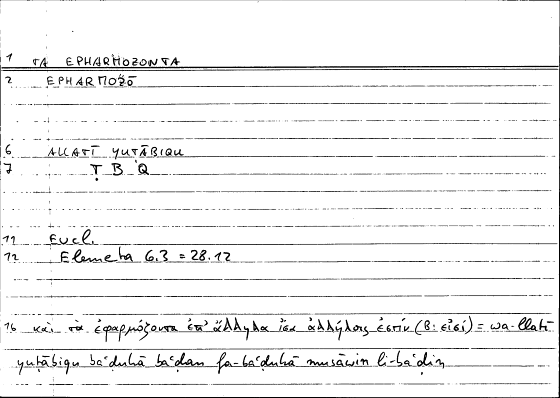 1 TA EPHARMOZONTA
2 EPHARMOZŌ
6 ALLATĪ YUṬĀBIQU
7 Ṭ B Q
11 Eucl.
12 Elementa 6.3 = 28.12
16 καὶ τὰ ἐφαρμόζοντα ἐπ' ἄλληλα ἴσα ἀλλήλοις ἐστίν (B: εἰσί) = wa-llatī
yuṭābiqu baʿḍuhā baʿḍan fa-baʿḍuhā musāwin li-baʿḍin